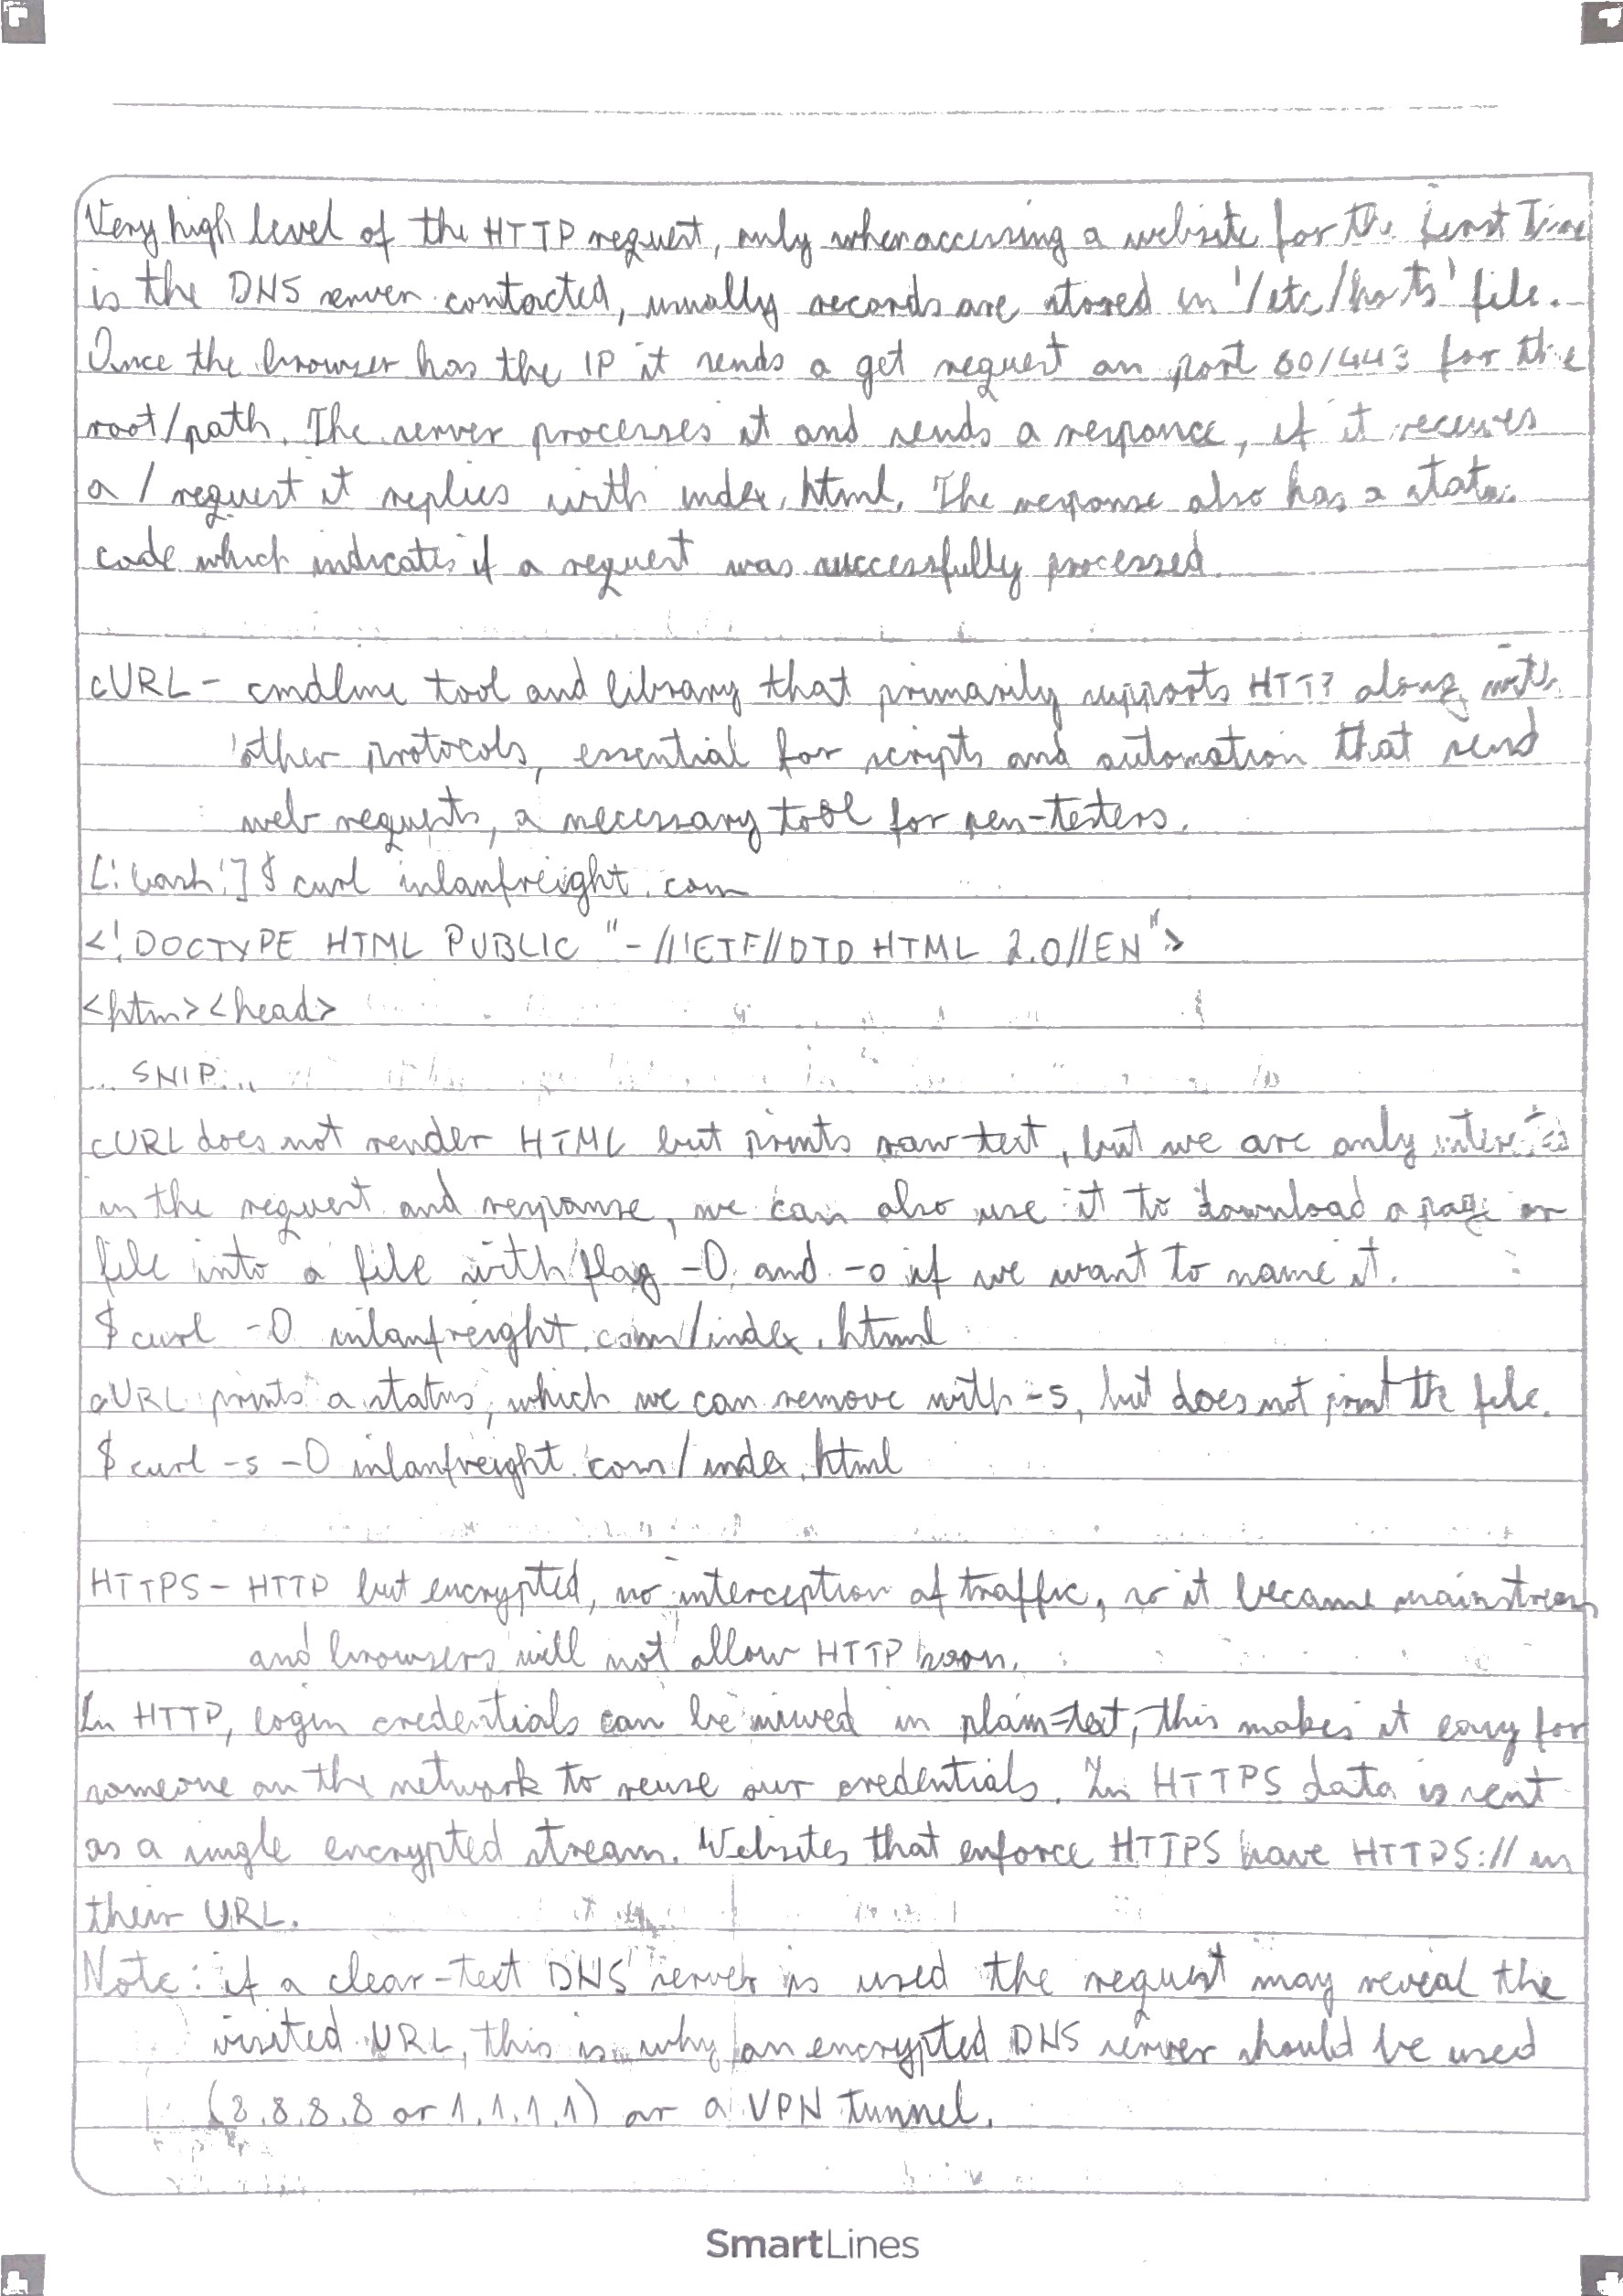 Very high level of the HTTP request, only when accessing a website for the first time
is the DNS server contacted, usually records are stored in '/etc/hosts' file.
Once the browser has the IP it sends a get request on port 80/443 for the
root/path. The server processes it and sends a responce, if it receives
a / request it replies with index.html. The response also has a status
code which indicates if a request was successfully processed.
cURL - cmdline tool and library that primarily supports HTTP along with
other protocols, essential for scripts and automation that send
web requests, a necessary tool for pen-testers.
[!bash!]$ curl inlanfreight.com
<!DOCTYPE HTML PUBLIC "-//IETF//DTD HTML 2.0//EN">
<htm><head>
... SNIP...
cURL does not render HTML but prints raw text, but we are only interested
in the request and response, we can also use it to download a page or
file into a file with flag -O and -o if we want to name it.
$ curl -O inlanfreight.com/index.html
cURL prints a status, which we can remove with -s, but does not print the file.
$ curl -s -O inlanfreight.com/index.html
HTTPS - HTTP but encrypted, no interception of traffic, so it became mainstream
and browsers will not allow HTTP soon.
In HTTP, login credentials can be viewed in plain-text, this makes it easy for
someone on the network to reuse our credentials. In HTTPS data is sent
as a single encrypted stream. Websites that enforce HTTPS have HTTPS:// in
their URL.
Note: if a clear-text DNS server is used the request may reveal the
visited URL, this is why an encrypted DNS server should be used
(8.8.8.8 or 1.1.1.1) or a VPN tunnel.
SmartLines